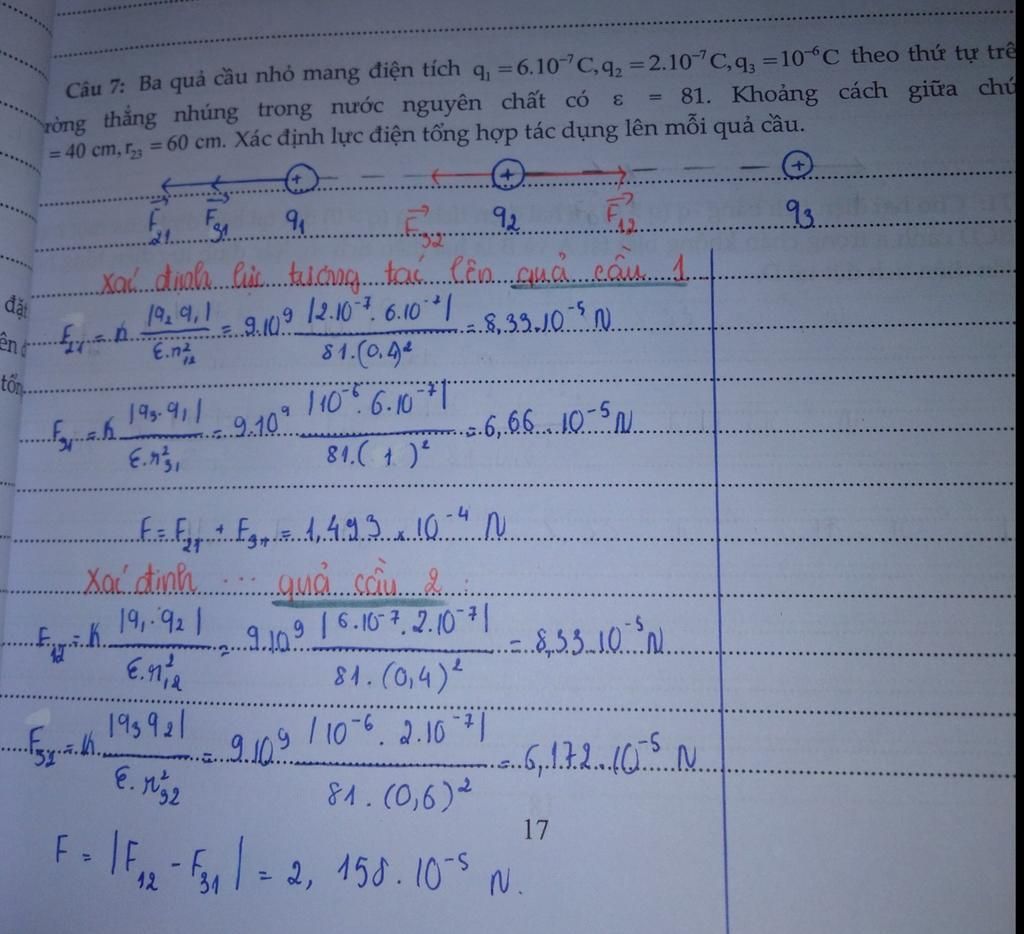 Câu 7: Ba quả cầu nhỏ mang điện tích q₁ = 6.10⁻⁷C, q₂ = 2.10⁻⁷C, q₃ = 10⁻⁶C theo thứ tự trê
ròng thẳng nhúng trong nước nguyên chất có ε = 81. Khoảng cách giữa chú
= 40 cm, r₂₃ = 60 cm. Xác định lực điện tổng hợp tác dụng lên mỗi quả cầu.
+ + +
F₂₁ F₃₁ q₁ F₃₂ q₂ F₁₂ q₃
Xác định lực tương tác lên quả cầu 1
đặt
F₂₁ = k |q₂ q₁| / ε.r²₁₂ = 9.10⁹ |2.10⁻⁷ . 6.10⁻⁷| / 81.(0,4)² = 8,33.10⁻⁵ N
ên
tổn
F₃₁ = k |q₃.q₁| / ε.r²₃₁ = 9.10⁹ |10⁻⁶. 6.10⁻⁷| / 81.(1)² = 6,66.10⁻⁵ N
F = F₂₁ + F₃₁ = 1,493 x 10⁻⁴ N
Xác định ... quả cầu 2 :
F₁₂ = k |q₁.q₂| / ε.r²₁₂ = 9.10⁹ |6.10⁻⁷. 2.10⁻⁷| / 81.(0,4)² = 8,33.10⁻⁵ N
F₃₂ = k |q₃ q₂| / ε.r²₃₂ = 9.10⁹ |10⁻⁶ . 2.10⁻⁷| / 81.(0,6)² = 6,172.10⁻⁵ N
17
F = |F₁₂ - F₃₁| = 2,158.10⁻⁵ N.